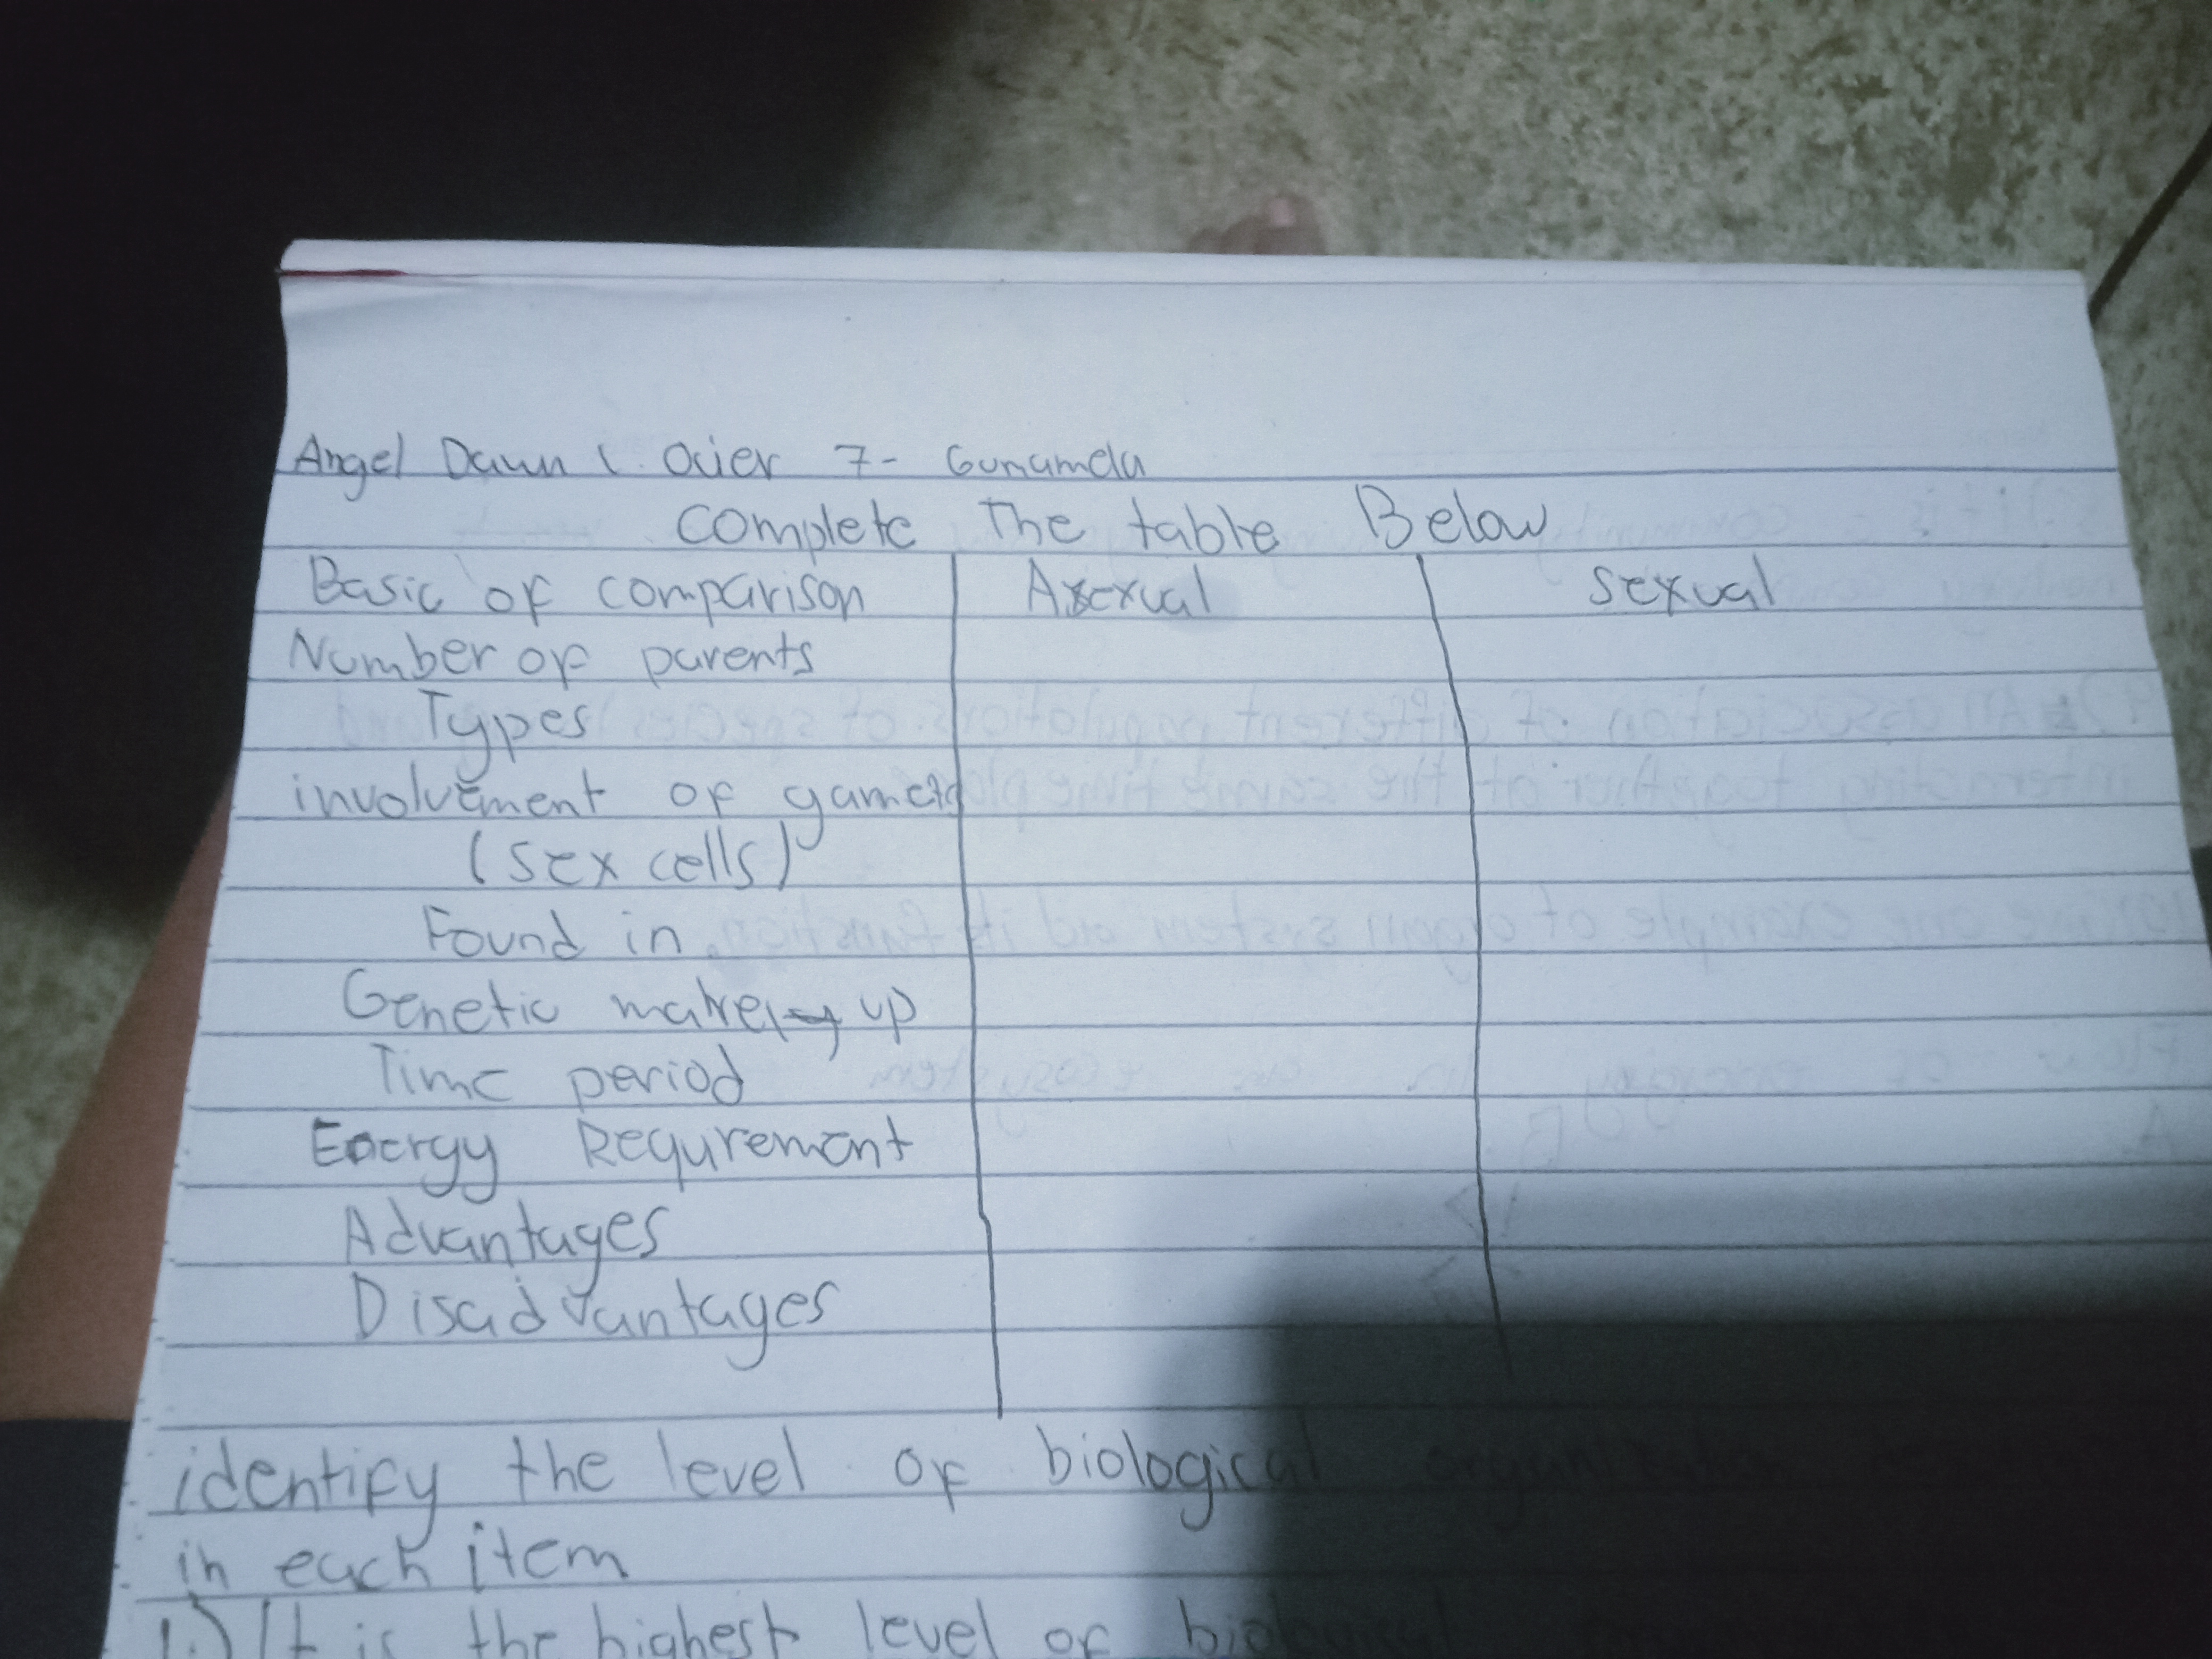 Angel Dawn C. Ovier 7- Gumamela
Complete The table Below
Basic of comparison Asexual sexual
Number of parents
Types
involvement of gamets
(sex cells)
Found in
Genetic make up
Time period
Energy Requrement
Advantages
Disadvantages
identify the level of biological
in each item
1.) It is the highest level of